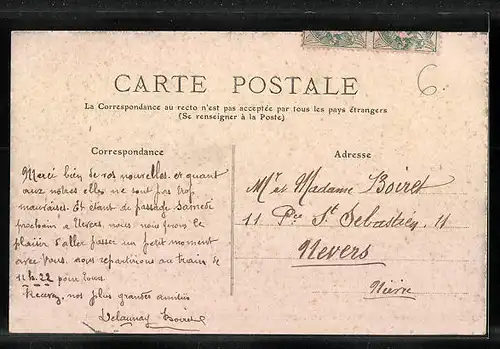 6
CARTE POSTALE
La Correspondance au recto n'est pas acceptée par tous les pays étrangers
(Se renseigner à la Poste)
Correspondance
Merci bien de vos nouvelles. et quant
aux nôtres elles ne sont pas trop
mauvaises. Et étant de passage Samedi
prochain à Nevers nous nous ferons le
plaisir d'aller passer un petit moment
avec vous. nous repartirons au train de
h. 22 pour
Recevez, nos plus grandes amitiés
Delaunay
Adresse
Mr et Madame Boiret
11 Pce St Sebastien 11
Nevers
Nièvre